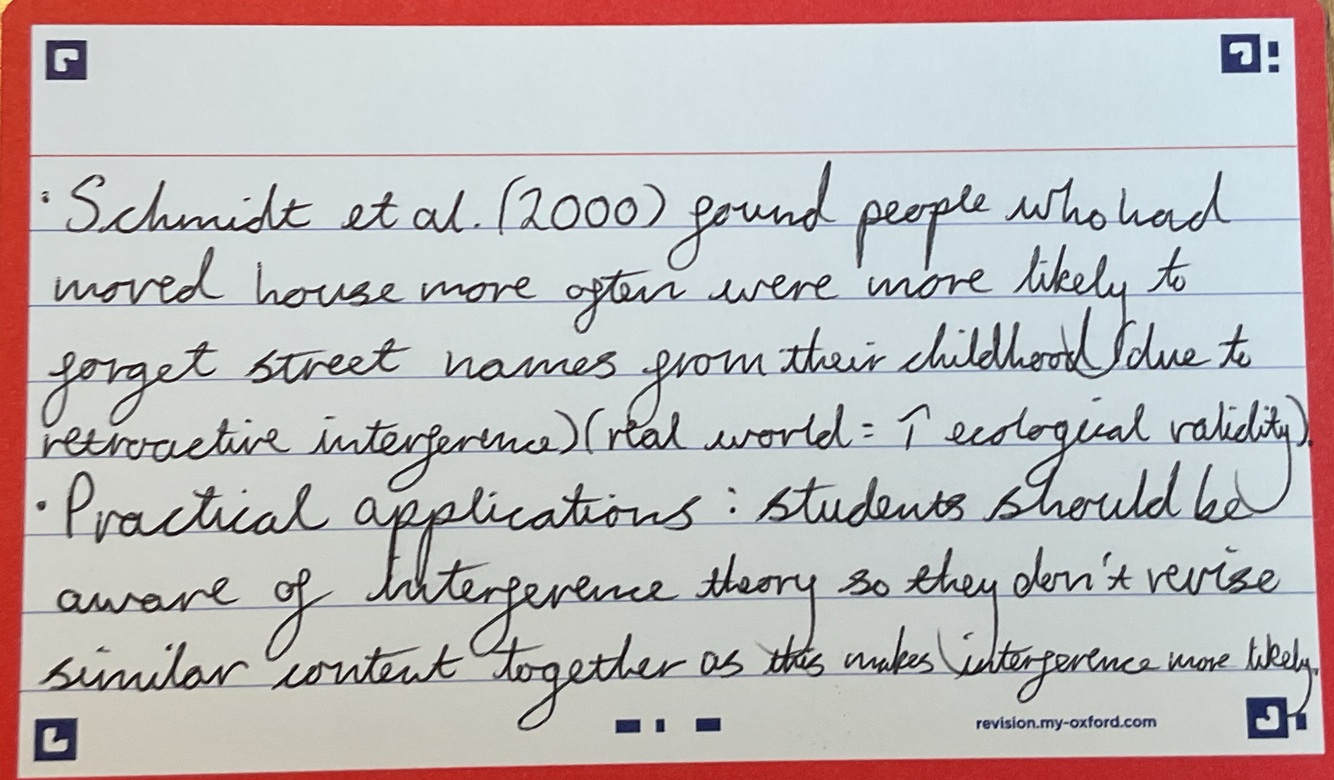 · Schmidt et al. (2000) found people who had
moved house more often were more likely to
forget street names from their childhood (due to
retroactive interference) (real world = ↑ ecological validity).
· Practical applications : students should be
aware of interference theory so they don't revise
similar content together as this makes interference more likely.
revision.my-oxford.com